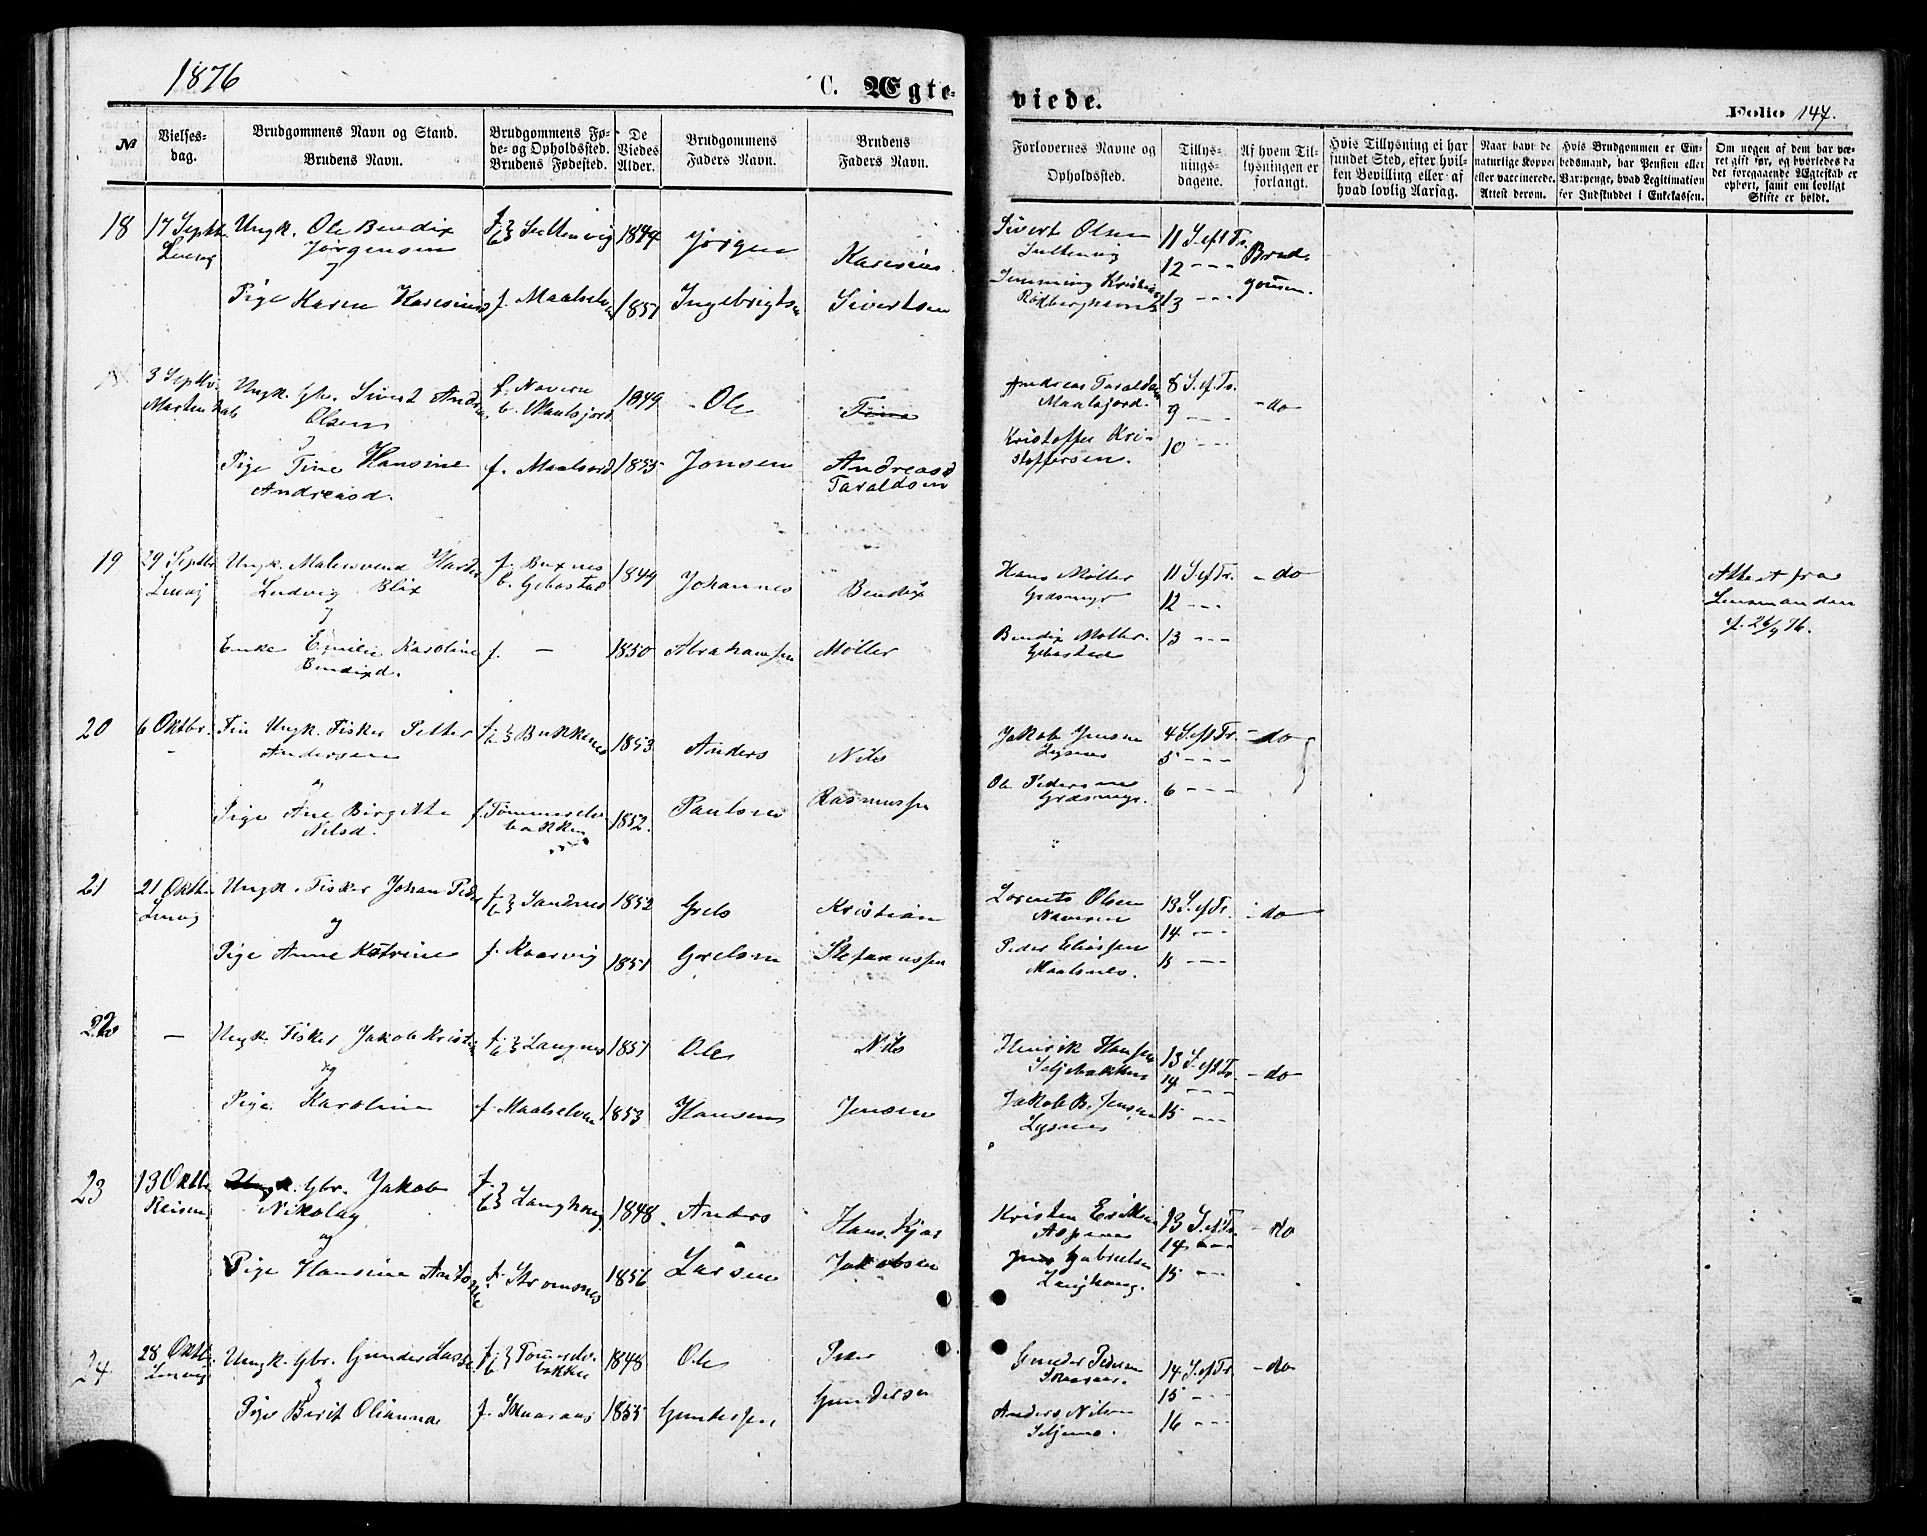 1876
C. Ægte-
viede.
Folio 147.
№
Vielses-
dag.
Brudgommens Navn og Stand.
Brudens Navn.
Brudgommens Fø-
de- og Opholdssted.
Brudens Fødested.
De
Viedes
Alder.
Brudgommens
Faders Navn.
Brudens
Faders Navn.
Forlovernes Navne og
Opholdssted.
Tillys-
nings-
dagene.
Af hvem Til-
lysningen er
forlangt.
Hvis Tillysning ei har
fundet Sted, efter hvil-
ken Bevilling eller af
hvad lovlig Aarsag.
Naar havt de
naturlige Kopper
eller vaccinerede.
Attest derom.
Hvis Brudgommen er Em-
bedsmand, har Pension eller
Vartpenge, hvad Legitimation
for Indskuddet i Enkekassen.
Om nogen af dem har væ-
ret gift før, og hvorledes da
det foregaaende Ægteskab er
ophørt, samt om lovligt
Skifte er holdt.
18 17 Septb. Ungk. Ole Bendix f. b. 1844 Jørgen Karesius Sivert Olsen 11 S. eft Tr.
Lenvig Jørgensen 12 - - - Brud-
og
Pige Karen Karesius f. Maalselven 1851 Ingebrigtsen Sivertsen 13 - - - gommen.
3 Septbr. Ungk. Gbr. Sivert Andreas f. b. Maalsfjord 1849 Ole Andreas Taraldsen 8 S. ef. Tr.
Olsen Maalsfjord. 9 - - - do
og
Pige Tine Hansine f. Maalsjord 1855 Jonsen Andreas Kristoffer Kri- 10 - - -
Andreasd. Taraldsen stoffersen.
19 29 Septbr. Ungk. f. Buxnes 1844 Johannes Bendix Hans Møller 11 S. ef Tr. - do Attest fra
Lenvig Ludvig Blix b. Gibostad Græsmyr 12 - - - Lensmanden
og
Enke Emilie Karoline f. - 1850 Abrahamsen Møller Bendix Møller 13 - - - f. 26/9 76.
Bendixd. Gibostad
20 6 Oktbr. Fin Ungk. Fisker Petter f. b. Bukkenes 1853 Anders Nils Jakob Jensen 4 S. eft Tr. - do
- Andersen Lysnes 5 - - -
og
Pige Ane Birgitte f. Tømmerelv- 1852. Paulsen Rasmussen Ole Pedersen 6 - - -
Nilsd. bakken Græsmyr.
21 21 Oktbr. Ungk. Fisker Johan Peder f. b. Sandnes 1852 Grels Kristian Lorents Olsen 13 S. ef Tr. - do
Lenvig 14 - - -
og
Pige Anne Katrine f. Kaarvig 1851 Grelsen Stefanussen Peder Eliassen 15 - - -
Maalsnes.
22 - Ungk. Fisker Jakob Kristian f. b. Langnes 1851 Ole Nils Henrik Hansen 13 S. eft Tr.
Seljebakken 14 - - - - do
og
Pige Karoline f. Maalselven 1853 Hansen Jensen Jakob B. Jensen 15 - - -
Lysnes
23 13 Oktbr. Ungk. Gbr. Jakob f. b. Langhaug 1848. Anders Hans Kristen Eriksen 13 S. ef Tr. - do
Reisen Nikolay Aspenes 14 - - -
og
Pige Hansine Antonie f. Strømsnes 1856 Larsen Jakobsen Jens Gabrielsen 15 - -
Langhaug.
24 28 Oktbr. Ungk. Gbr. Gunder f. b. Tømmerelv- 1848 Ole Peder Gunder Pedersen 14 S. ef Tr. - do
Lenvig bakken 15 - -
og
Pige Berit Olianna f. 1855 Gundersen Gundersen Anders Nilsen 16 - - -
Seljemo.